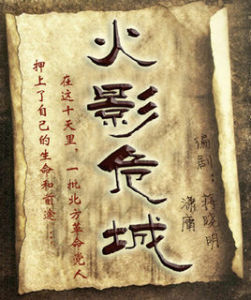 火影危城
在这十天里，一批北方革命党人
押上了自己的生命和前途…
编剧
蒋晓明